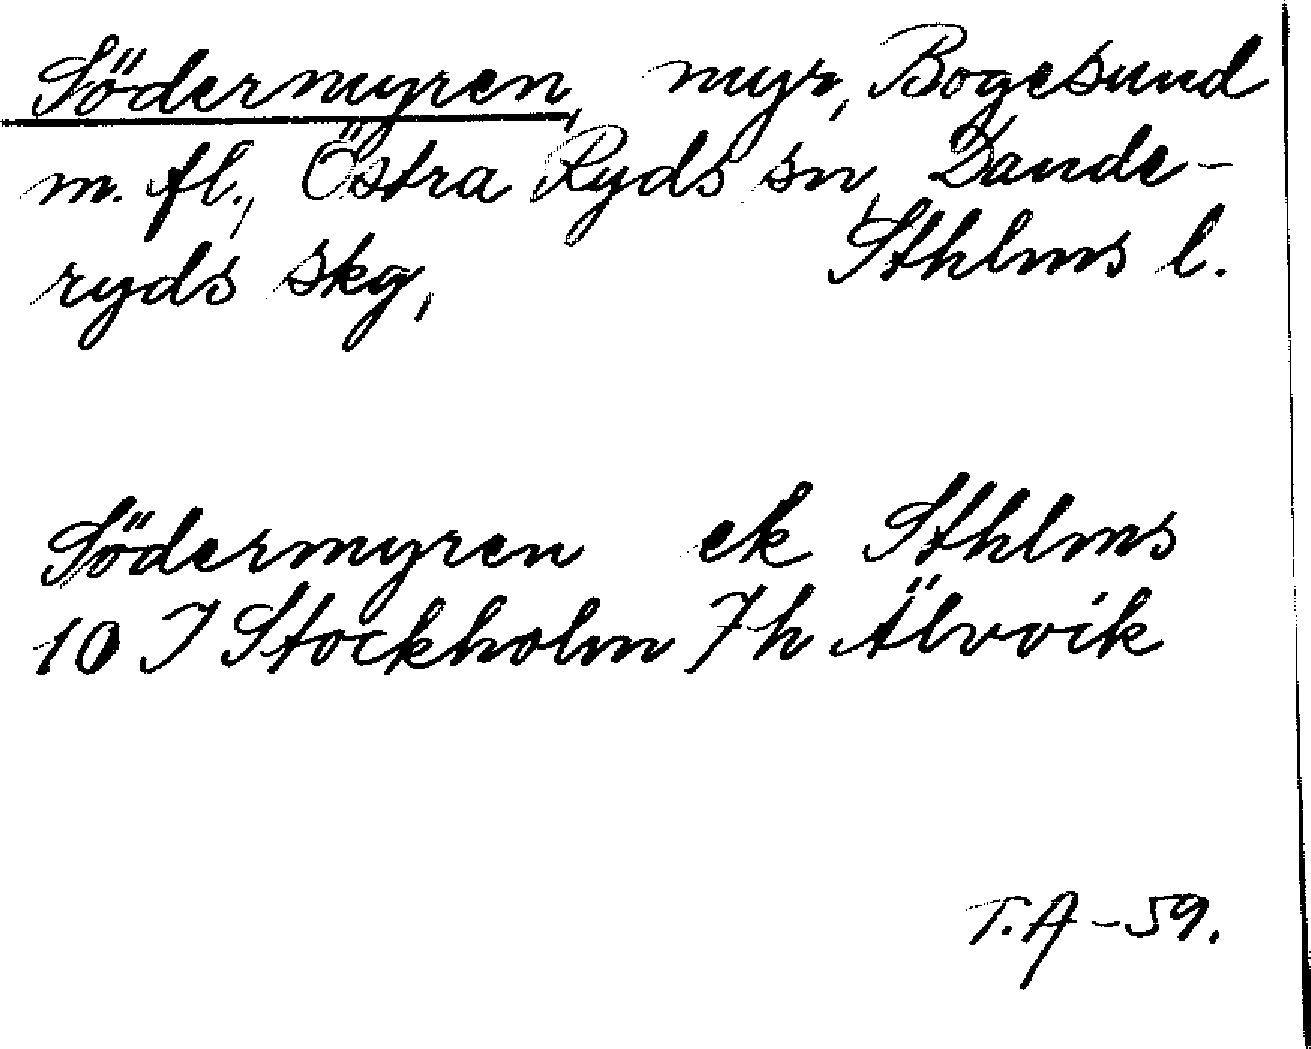 Södermyren, myr, Bogesund
m. fl., Östra Ryds sn, Dande-
ryds skg, Sthlms l.
Södermyren ek Sthlms
10 I Stockholm 7h Älvvik
T.A-59.